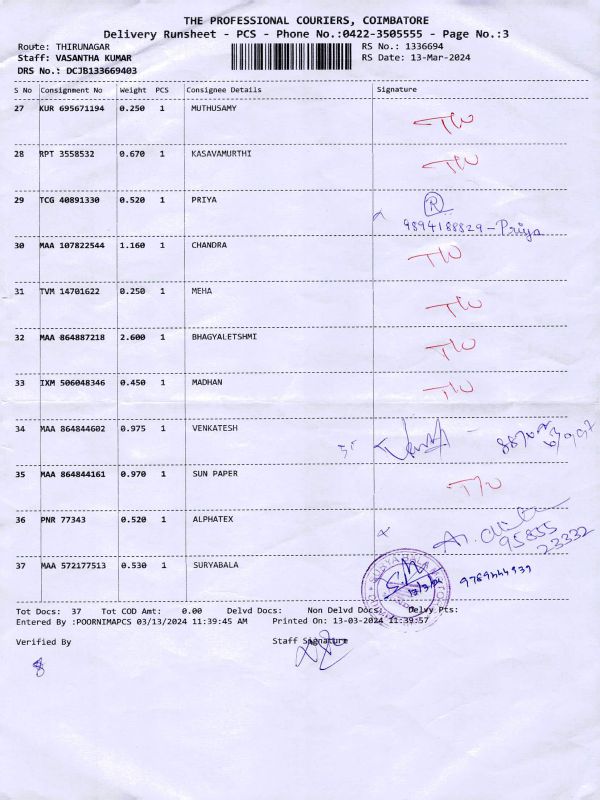 THE PROFESSIONAL COURIERS, COIMBATORE
Delivery Runsheet - PCS - Phone No.:0422-3505555 - Page No.:3
Route: THIRUNAGAR RS No.: 1336694
Staff: VASANTHA KUMAR RS Date: 13-Mar-2024
DRS No.: DCJB133669403
S No Consignment No Weight PCS Consignee Details Signature
27 KUR 695671194 0.250 1 MUTHUSAMY
28 RPT 3558532 0.670 1 KASAVAMURTHI
29 TCG 40891330 0.520 1 PRIYA R
9894188829 - Priya
30 MAA 107822544 1.160 1 CHANDRA
31 TVM 14701622 0.250 1 MEHA
32 MAA 864887218 2.600 1 BHAGYALETSHMI
33 IXM 506048346 0.450 1 MADHAN
34 MAA 864844602 0.975 1 VENKATESH
35 MAA 864844161 0.970 1 SUN PAPER
36 PNR 77343 0.520 1 ALPHATEX
95855
23332
37 MAA 572177513 0.530 1 SURYABALA
Tot Docs: 37 Tot COD Amt: 0.00 Delvd Docs: Non Delvd Docs: Delvy Pts:
Entered By :POORNIMAPCS 03/13/2024 11:39:45 AM Printed On: 13-03-2024 11:39:57
Verified By Staff Signature